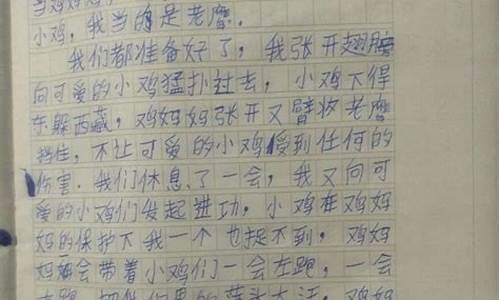 当鸡妈妈,
小鸡,我当的是老鹰。
我们都准备好了,我张开翅膀
向可爱的小鸡猛扑过去,小鸡下得
东躲西藏,鸡妈妈张开又臂将老鹰
挡住,不让可爱的小鸡受到任何的
伤害.我们休息了一会,我又向可
爱的小鸡们发起进功,小鸡在鸡妈
妈的保护下我一个也捉不到,鸡妈
妈会带着小鸡们一会左跑,一会
右跑,把他们累的 头大汗,鸡妈